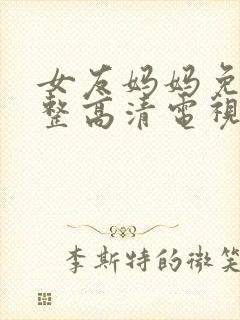 女友妈妈免
整高清電視
李斯特的微笑